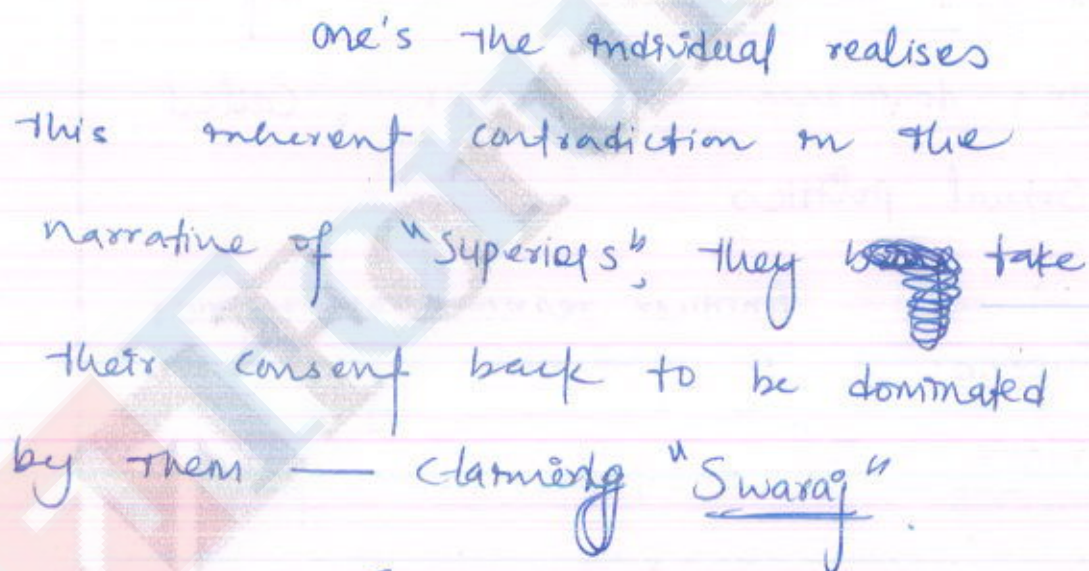 one's the individual realises
this inherent contradiction in the
narrative of "Superiors", they take
their consent back to be dominated
by them — Claiming "Swaraj".